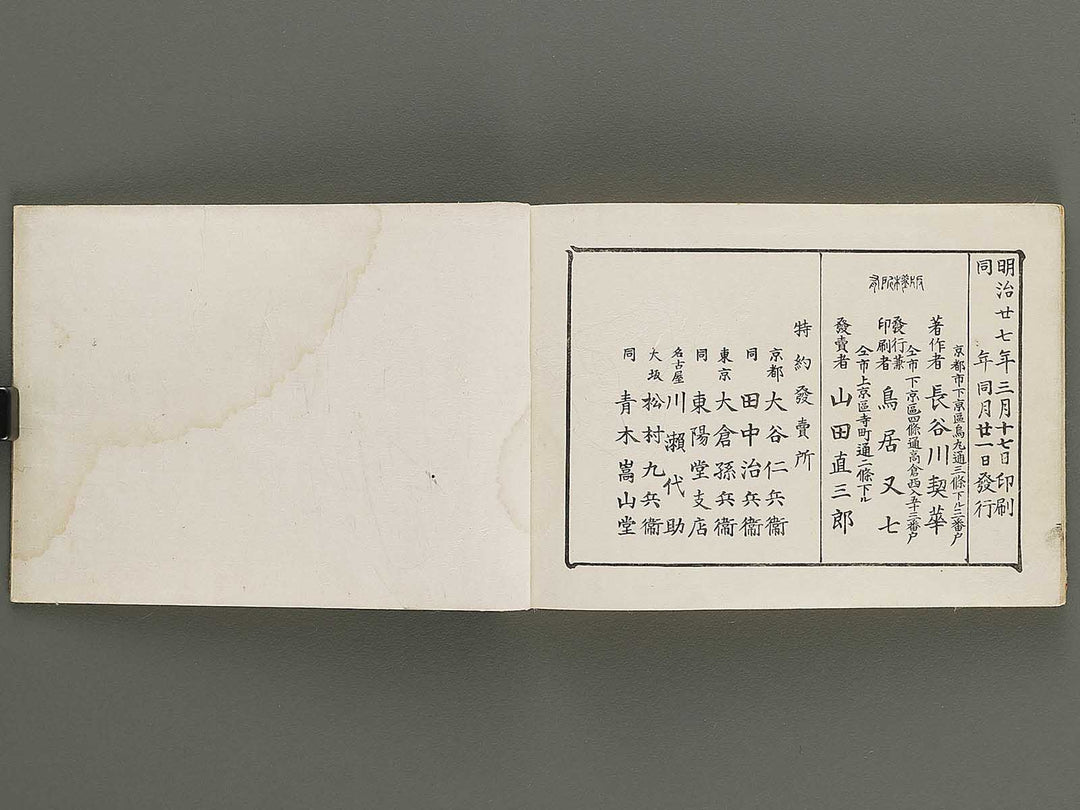 明治廿七年三月十七日印刷
同年同月廿一日發行
京都市下京區烏丸通三條下ル三番戸
著作者 長谷川契華
仝市下京區四條通高倉西入五十三番戸
發行兼印刷者 鳥居又七
仝市上京區寺町通二條下ル
發賣者 山田直三郎
版權所有
特約發賣所
京都 大谷仁兵衞
同 田中治兵衞
東京 大倉孫兵衞
同 東陽堂支店
名古屋 川瀨代助
大坂 松村九兵衞
同 青木嵩山堂